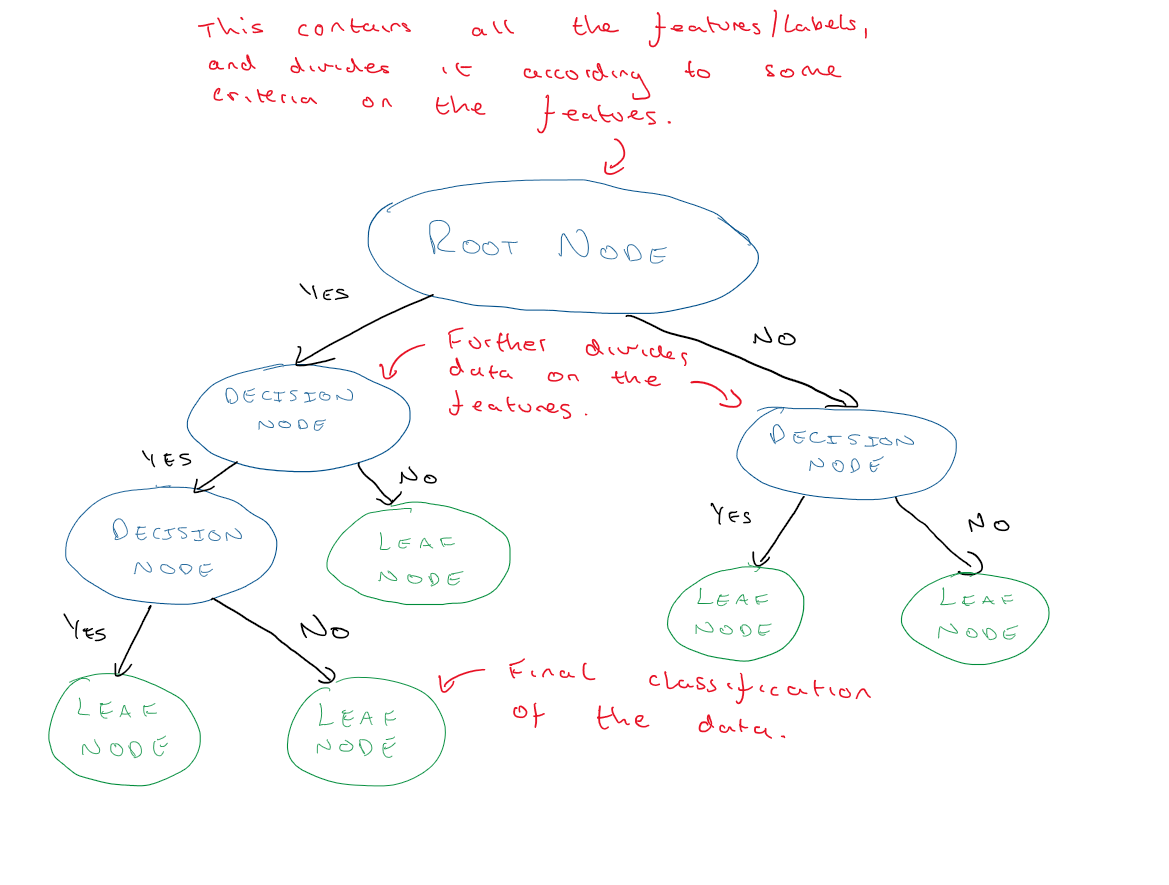 This contains all the features/labels,
and divides it according to some
criteria on the features.
ROOT NODE
YES
NO
Further divides
data on the
features.
DECISION
NODE
DECISION
NODE
YES
NO
YES
NO
DECISION
NODE
LEAF
NODE
LEAF
NODE
LEAF
NODE
YES
NO
Final classification
of the data.
LEAF
NODE
LEAF
NODE